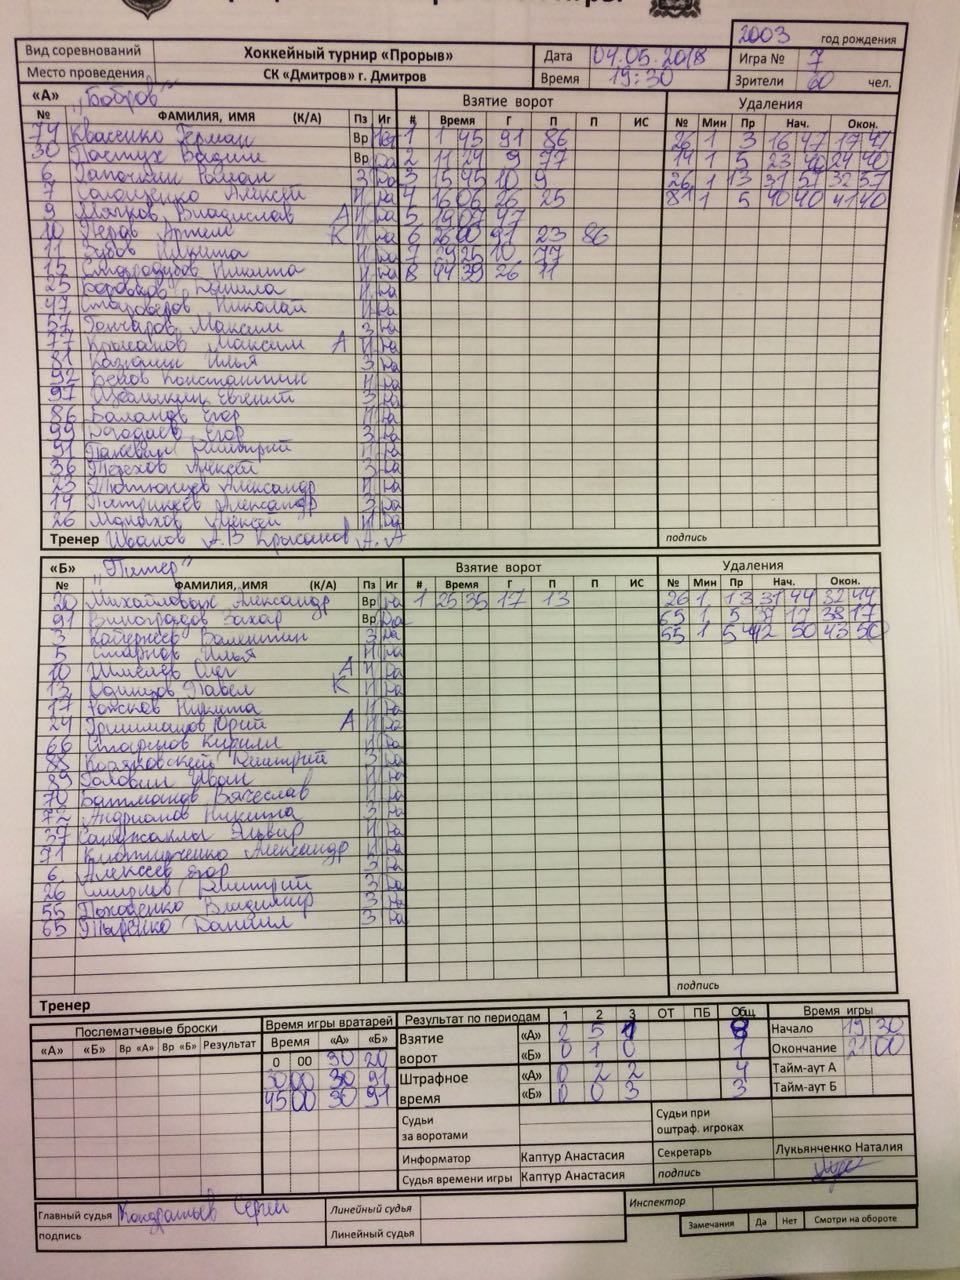 2003 год рождения
Вид соревнований Хоккейный турнир «Прорыв» Дата 04.05.2018 Игра № 7
Место проведения СК «Дмитров» г. Дмитров Время 19:30 Зрители 60 чел.
«А» „Бобров" Взятие ворот Удаления
№ ФАМИЛИЯ, ИМЯ (К/А) Пз Иг # Время Г П П ИС № Мин Пр Нач. Окон.
79 Квасенко Герман Вр 1 1 45 91 86 26 1 3 16 47 17 47
30 Пастух Вадим Вр да 2 11 24 9 77 14 1 5 23 40 24 40
6 Роман З да 3 15 45 10 9 26 1 13 31 57 32 57
7 Алексей Н да 4 16 06 26 25 81 1 5 40 40 41 40
9 Мягков Владислав А Н да 5 19 07 97
10 Перов Артём К Н да 6 26 00 91 23 86
11 Зубов Никита Н да 7 29 25 10 77
15 Стародубов Никита Н да 8 44 39 26 11
25 Боровков Данила Н да
47 Староверов Николай Н да
57 Гончаров Максим З да
77 Крысанов Максим А Н да
81 Казюлин Илья З да
92 Белов Константин Н да
97 Евгений З да
86 Баландов Егор Н да
99 Егор З да
91 Паневин Дмитрий Н да
36 Терехов Алексей З да
23 Тютюнцев Александр Н да
14 Петрищев Александр З да
26 Монахов Алексей Н да
Тренер Иванов А.В Крысанов А.А подпись
«Б» „Питер" Взятие ворот Удаления
№ ФАМИЛИЯ, ИМЯ (К/А) Пз Иг # Время Г П П ИС № Мин Пр Нач. Окон.
20 Михайловых Александр Вр да 1 25 35 17 13 26 1 13 31 44 32 44
91 Виноградов Захар Вр да 65 1 5 37 17 38 17
3 Валентин З да 55 1 5 42 50 43 50
5 Смирнов Илья Н да
10 Шмелёв Олег А Н да
13 Одинцов Павел К Н да
17 Носков Никита Н да
24 Гришманов Юрий А Н да
66 Старцов Кирилл Н да
88 Коряковский Дмитрий З да
89 Головин Иван Н да
70 Батманов Вячеслав Н да
72 Андрианов Никита З да
37 Эльвир Н да
71 Александр Н да
6 Алексеев Егор З да
26 Смирнов Дмитрий З да
55 Походенко Владимир З да
65 Даниил З да
подпись
Тренер
Послематчевые броски Время игры вратарей Результат по периодам 1 2 3 ОТ ПБ Общ Время игры
«А» «Б» Вр «А» Вр «Б» Результат Время «А» «Б» Взятие ворот «А» 2 5 1 8 Начало 19 30
0 00 30 20 «Б» 0 1 0 1 Окончание 21 00
30 00 30 91 Штрафное время «А» 0 2 2 4 Тайм-аут А
45 00 30 91 «Б» 0 0 3 3 Тайм-аут Б
Судьи за воротами Судьи при оштраф. игроках
Информатор Каптур Анастасия Секретарь Лукьянченко Наталия
Судья времени игры Каптур Анастасия подпись
Главный судья Кондратьев Сергей Линейный судья Инспектор
подпись Линейный судья Замечания Да Нет Смотри на обороте